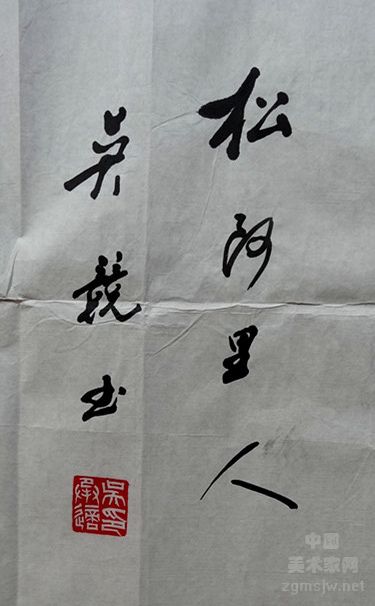 松阿里人
吴競书
中国
美术家网
zgmsjw.net